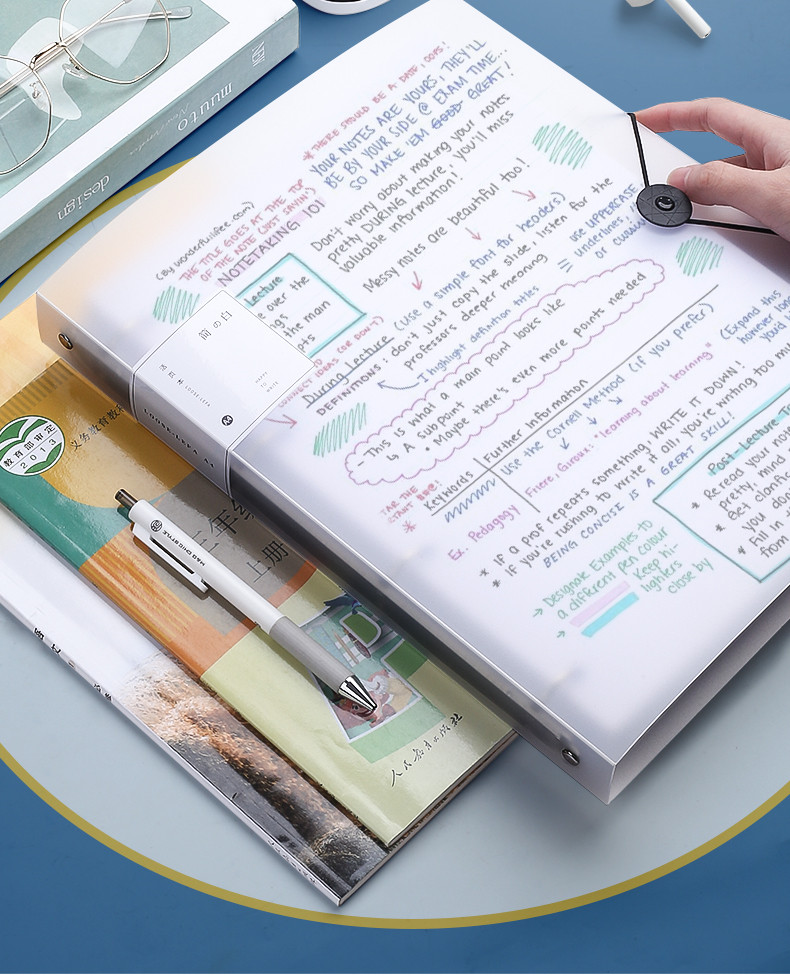 muuto
design
NEW
* THERE SHOULD BE A DATE, OOPS!
YOUR NOTES ARE YOURS, THEY'LL
BE BY YOUR SIDE @ EXAM TIME...
SO MAKE 'EM GOOD GREAT!
(By wonderfullifee.com)
THE TITLE GOES AT THE TOP
OF THE NOTE (JUST SAYIN')
NOTETAKING 101
Don't worry about making your notes
pretty DURING lecture, you'll miss
valuable information!
Messy notes are beautiful too!
Lecture
e over the
the main
During Lecture (Use a simple font for headers)
DEFINITIONS: don't just copy the slide, listen for the
professors deeper meaning
= use UPPERCASE,
underlines,
or
I highlight definition titles
- This is what a main point looks like
↳ A subpoint
• Maybe there's even more points needed
Keywords | Further information
Use the Cornell Method (if you prefer)
(Expand this
however long
you'd
TAR THE
Ex. Pedagogy
Friere, Giroux: "learning about learning"
* IF a Prof repeats something, WRITE IT DOWN!
* if you're rushing to write it all, you're writing too mu
BEING CONCISE IS A GREAT SKILL!
→ Designate Examples to
a different pen colour
→ Keep hi-
lighters
close by
Post-Lecture To
* Re read your not
pretty, mind
* Get clarif
you don
* Fill in
from
简の白
活页本 LOOSE-LEAF
LOOSE-LEAF A4
教育部审定
2013
义务教育教
三年级
上册
M&G QUIC STYLE
人民教育出版社